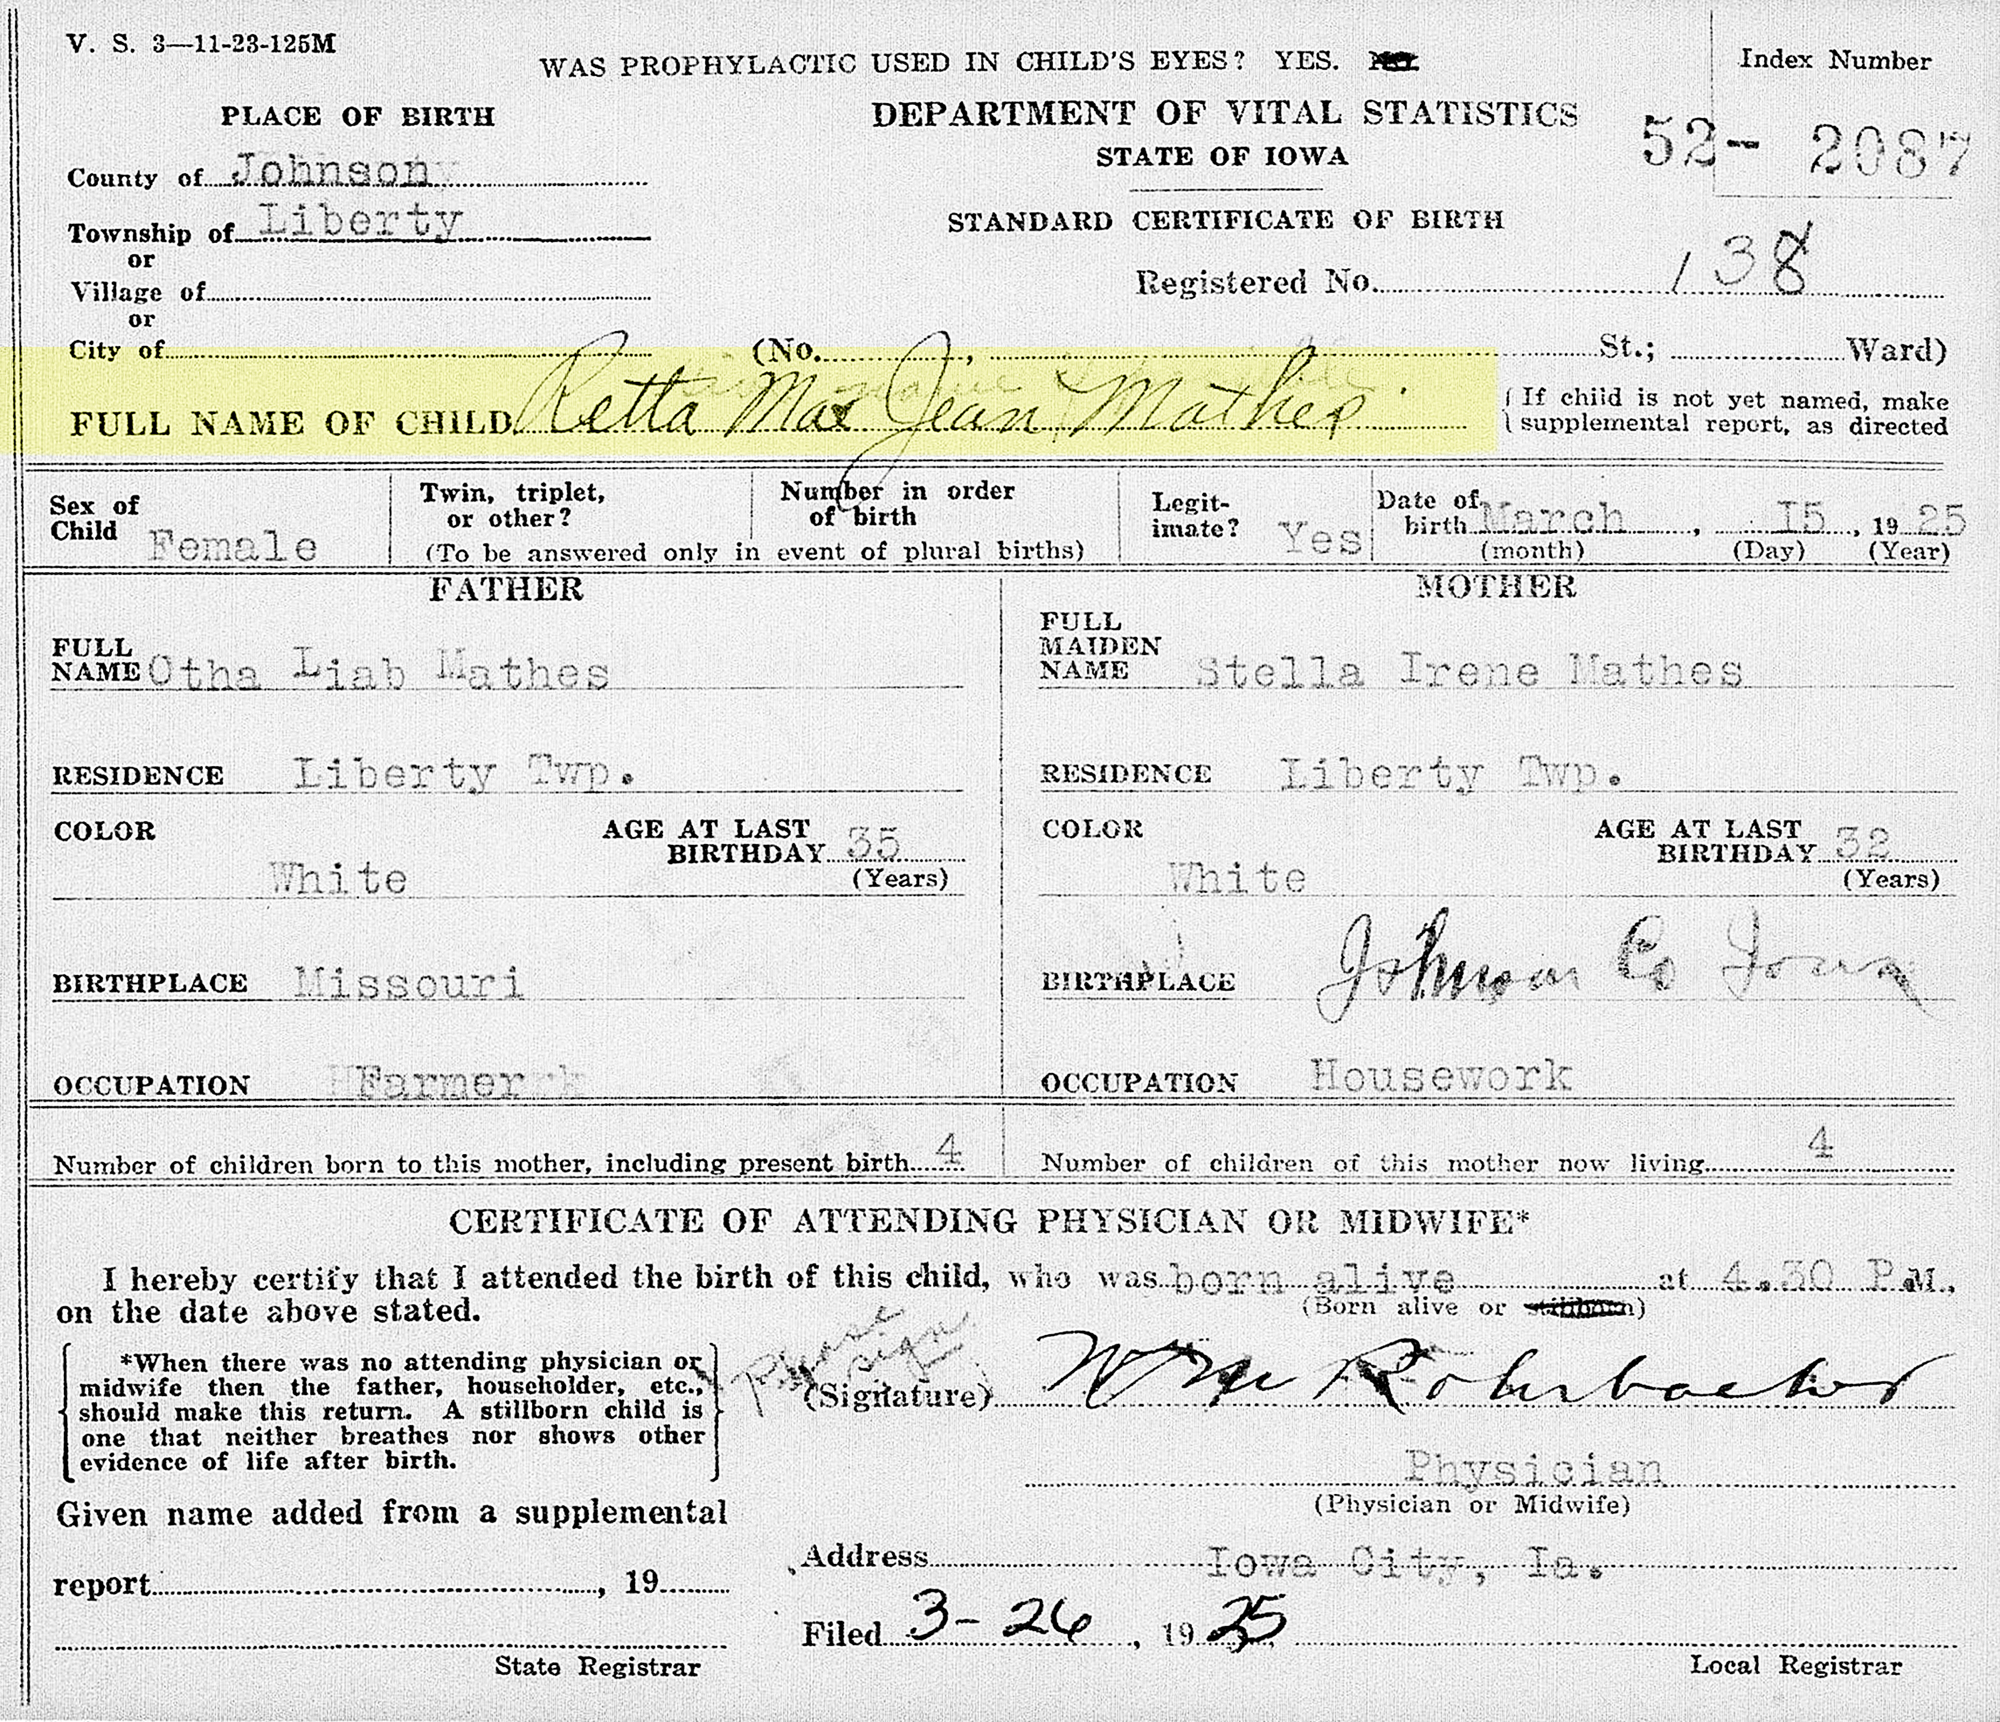 V. S. 3—11-23-125M
WAS PROPHYLACTIC USED IN CHILD'S EYES? YES.
Index Number
PLACE OF BIRTH
DEPARTMENT OF VITAL STATISTICS
52- 2087
County of Johnson
STATE OF IOWA
Township of Liberty
STANDARD CERTIFICATE OF BIRTH
or
Village of
Registered No. 138
or
City of (No. , St.; Ward)
FULL NAME OF CHILD Retta Mae Jean Mathes
{ If child is not yet named, make
supplemental report, as directed
Sex of
Child Female
Twin, triplet,
or other?
Number in order
of birth
(To be answered only in event of plural births)
Legit-
imate? Yes
Date of
birth March , 15 , 19 25
(month) (Day) (Year)
FATHER
MOTHER
FULL
NAME Otha Liab Mathes
FULL
MAIDEN
NAME Stella Irene Mathes
RESIDENCE Liberty Twp.
RESIDENCE Liberty Twp.
COLOR White
AGE AT LAST
BIRTHDAY 35
(Years)
COLOR White
AGE AT LAST
BIRTHDAY 32
(Years)
BIRTHPLACE Missouri
BIRTHPLACE Johnson Co Iowa
OCCUPATION Farmer
OCCUPATION Housework
Number of children born to this mother, including present birth 4
Number of children of this mother now living 4
CERTIFICATE OF ATTENDING PHYSICIAN OR MIDWIFE*
I hereby certify that I attended the birth of this child, who was born alive at 4.30 P.M.,
(Born alive or stillborn)
on the date above stated.
*When there was no attending physician or
midwife then the father, householder, etc.,
should make this return. A stillborn child is
one that neither breathes nor shows other
evidence of life after birth.
Please
sign
(Signature) Wm Rohrbacher
Physician
(Physician or Midwife)
Given name added from a supplemental
report , 19
Address Iowa City, Ia.
Filed 3-26 , 19 25
State Registrar
Local Registrar